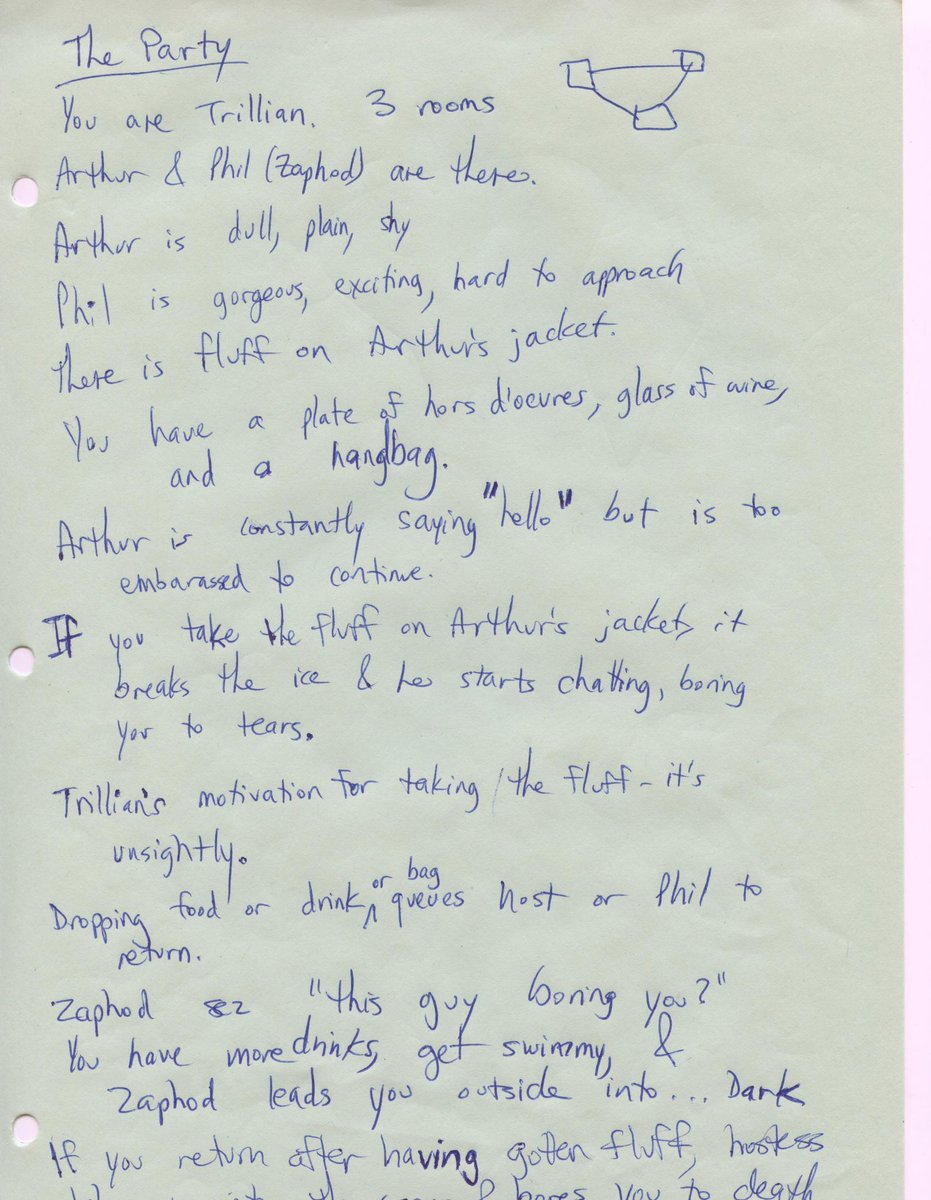 The Party
You are Trillian. 3 rooms
Arthur & Phil (Zaphod) are there.
Arthur is dull, plain, shy
Phil is gorgeous, exciting, hard to approach
There is fluff on Arthur's jacket.
You have a plate of hors d'oevres, glass of wine,
and a handbag.
Arthur is constantly saying "hello" but is too
embarassed to continue.
If you take the fluff on Arthur's jacket, it
breaks the ice & he starts chatting, boring
you to tears.
Trillian's motivation for taking the fluff - it's
unsightly.
Dropping food or drink, or bag queues host or Phil to
return.
Zaphod sez "this guy boring you?"
You have more drinks, get swimmy, &
Zaphod leads you outside into... Dark
If you return after having gotten fluff, hostess
bores you to death